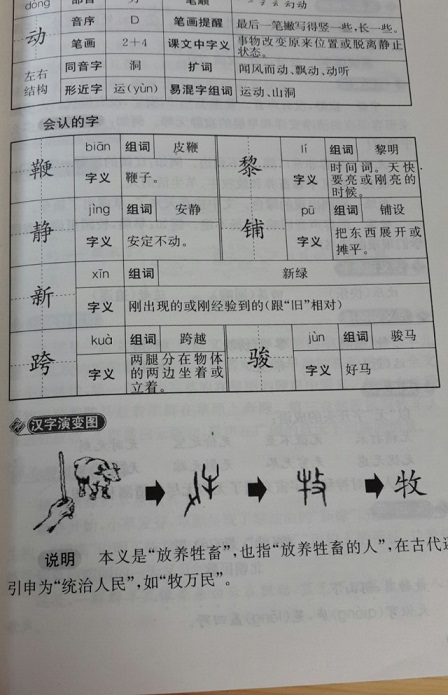 dóng 部首 力 笔顺
动 音序 D 笔画提醒 最后一笔撇写得竖一些,长一些。
笔画 2+4 课文中字义 事物改变原来位置或脱离静止状态。
左右结构 同音字 洞 扩词 闻风而动、飘动、动听
形近字 运(yùn) 易混字组词 运动、山洞
会认的字
鞭 biān 组词 皮鞭 黎 lí 组词 黎明
字义 鞭子。 字义 时间词。天快要亮或刚亮的时候。
静 jìng 组词 安静 铺 pū 组词 铺设
字义 安定不动。 字义 把东西展开或摊平。
新 xīn 组词 新绿
字义 刚出现的或刚经验到的(跟“旧”相对)
跨 kuà 组词 跨越 骏 jùn 组词 骏马
字义 两腿分在物体的两边坐着或立着。 字义 好马
汉字演变图
牧
说明 本义是“放养牲畜”,也指“放养牲畜的人”,在古代
引申为“统治人民”,如“牧万民”。